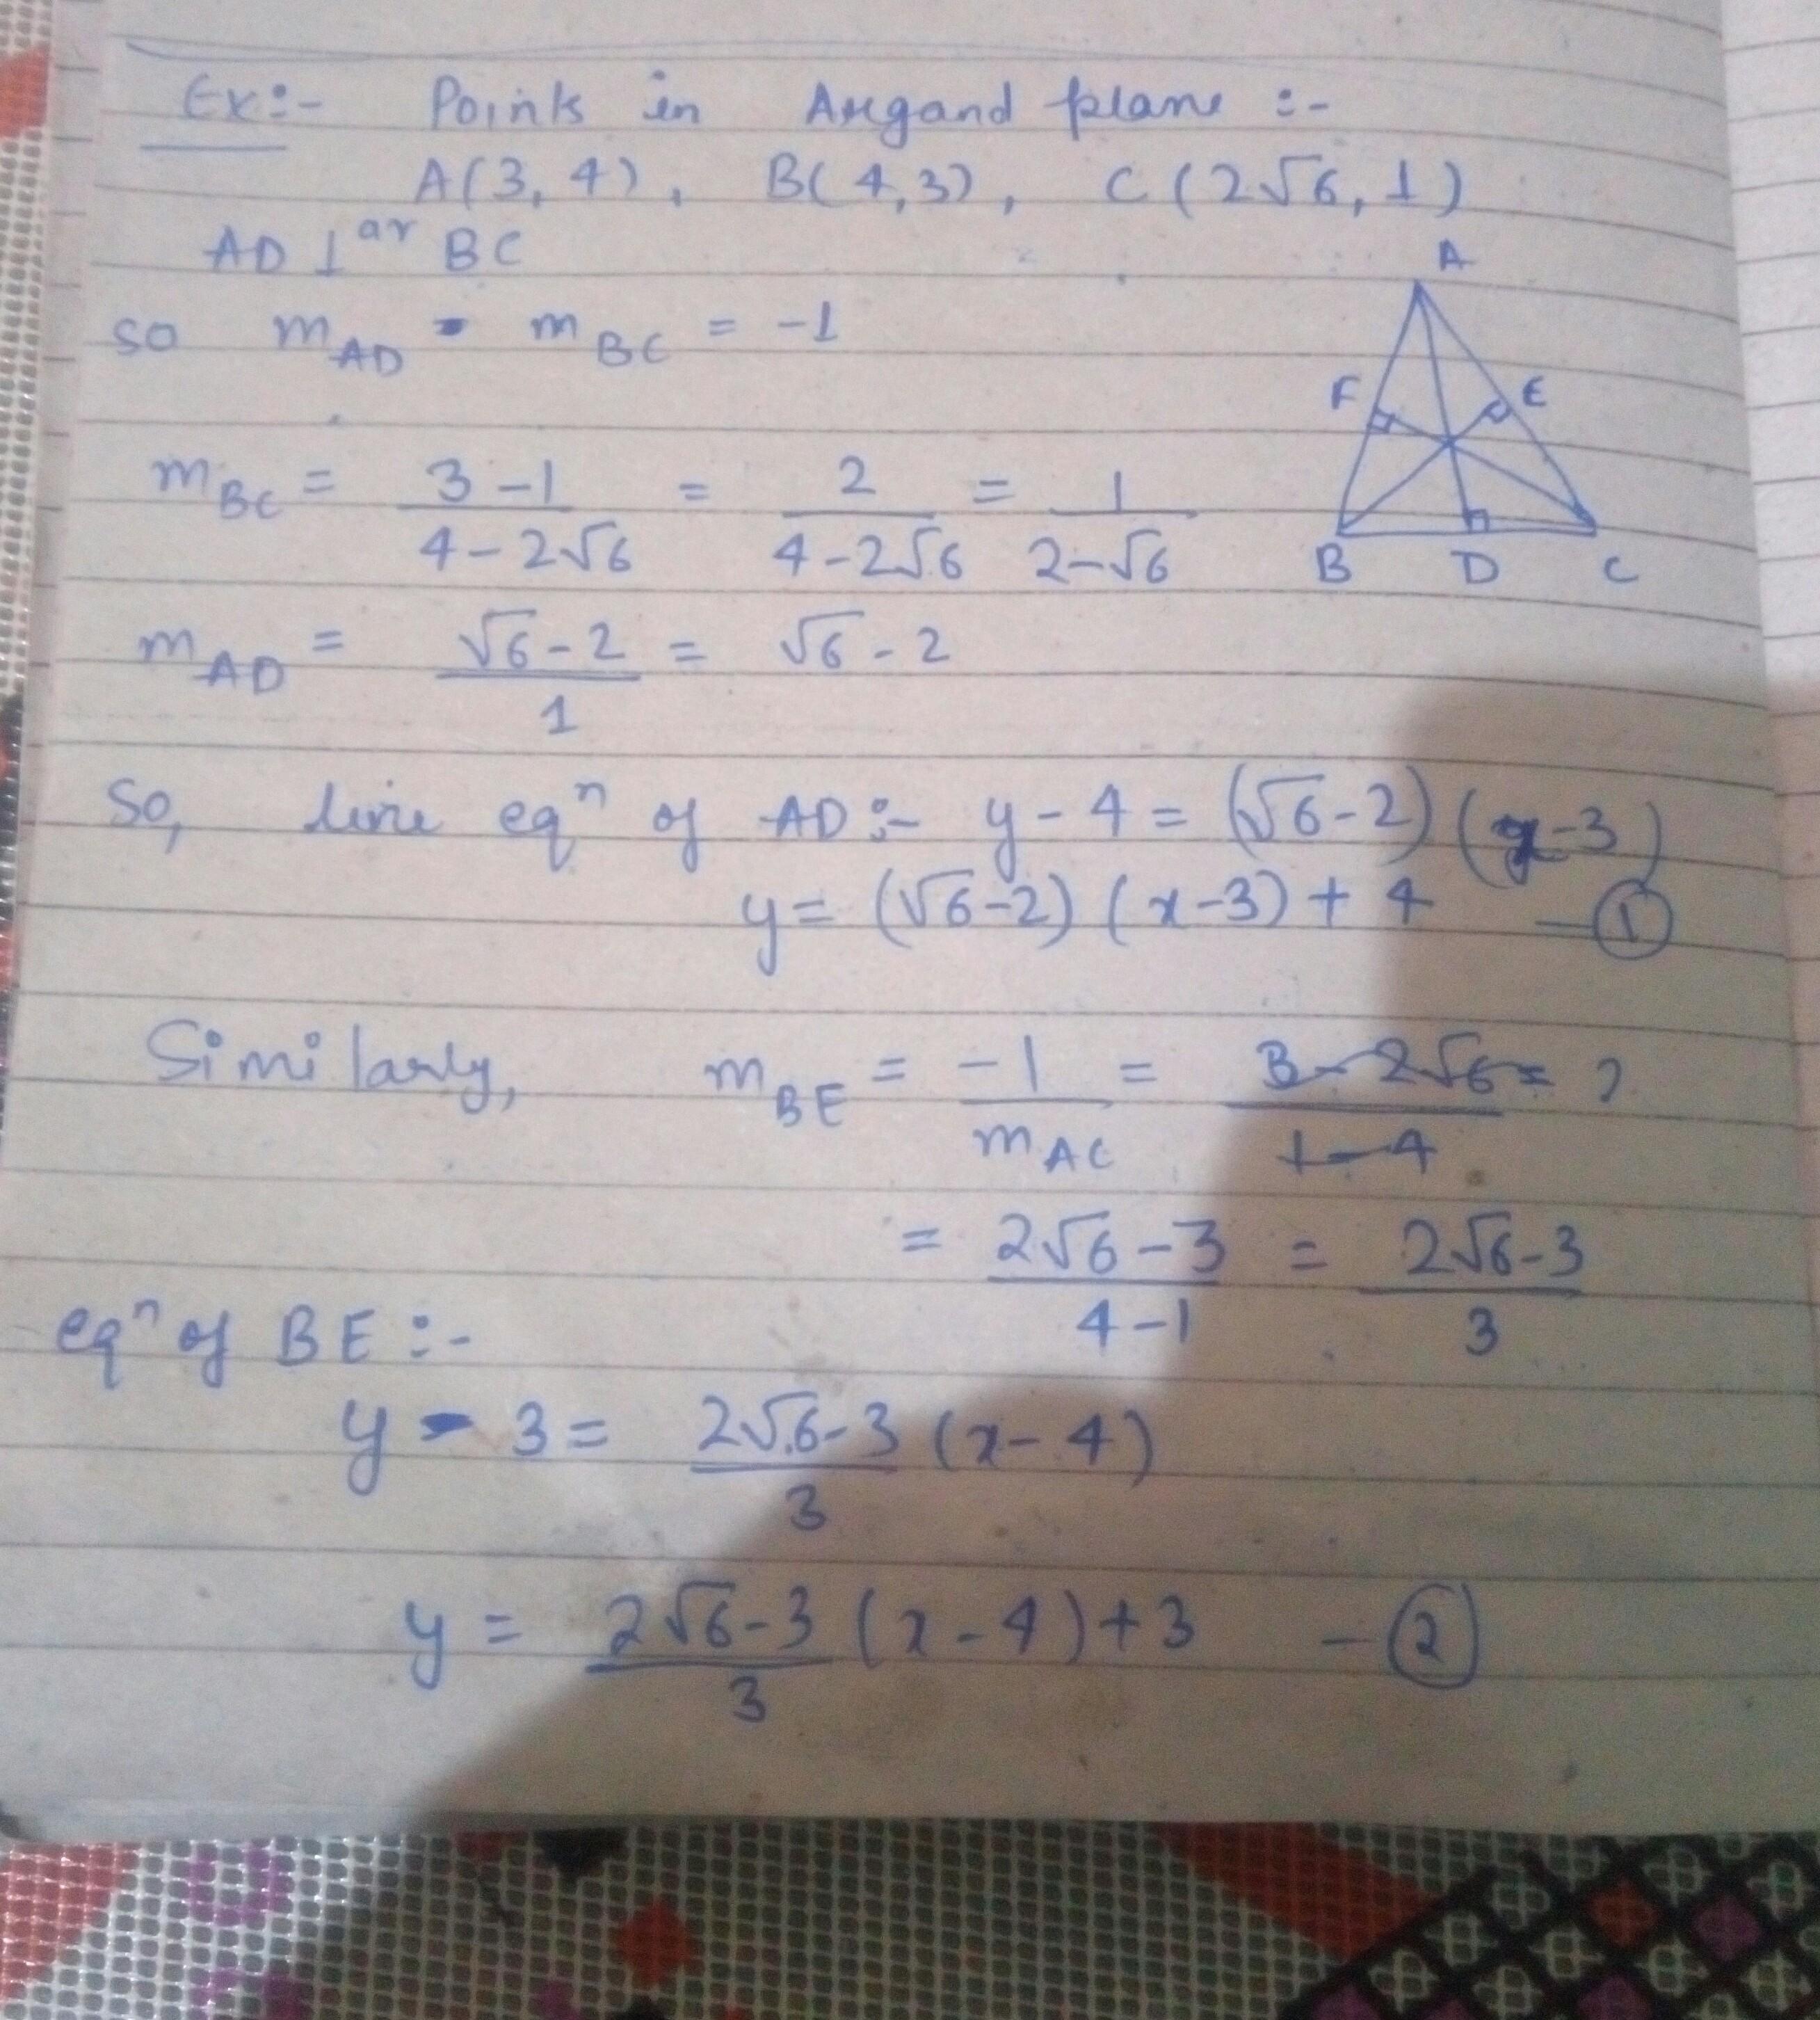 Ex:- Points in Argand plane :-
A(3, 4), B(4,3), C(2√6, 1)
AD ⊥ᵃʳ BC
A
so m_AD · m_BC = -1
F E
m_BC = (3-1)/(4-2√6) = 2/(4-2√6) = 1/(2-√6)
B D C
m_AD = (√6-2)/1 = √6-2
So, line eqⁿ of AD:- y-4 = (√6-2)(x-3)
y = (√6-2)(x-3)+4 -①
Similarly, m_BE = -1/m_AC = (3-2√6)/(1-4) =
= (2√6-3)/(4-1) = (2√6-3)/3
eqⁿ of BE:-
y-3 = (2√6-3)/3 (x-4)
y = (2√6-3)/3 (x-4)+3 -②